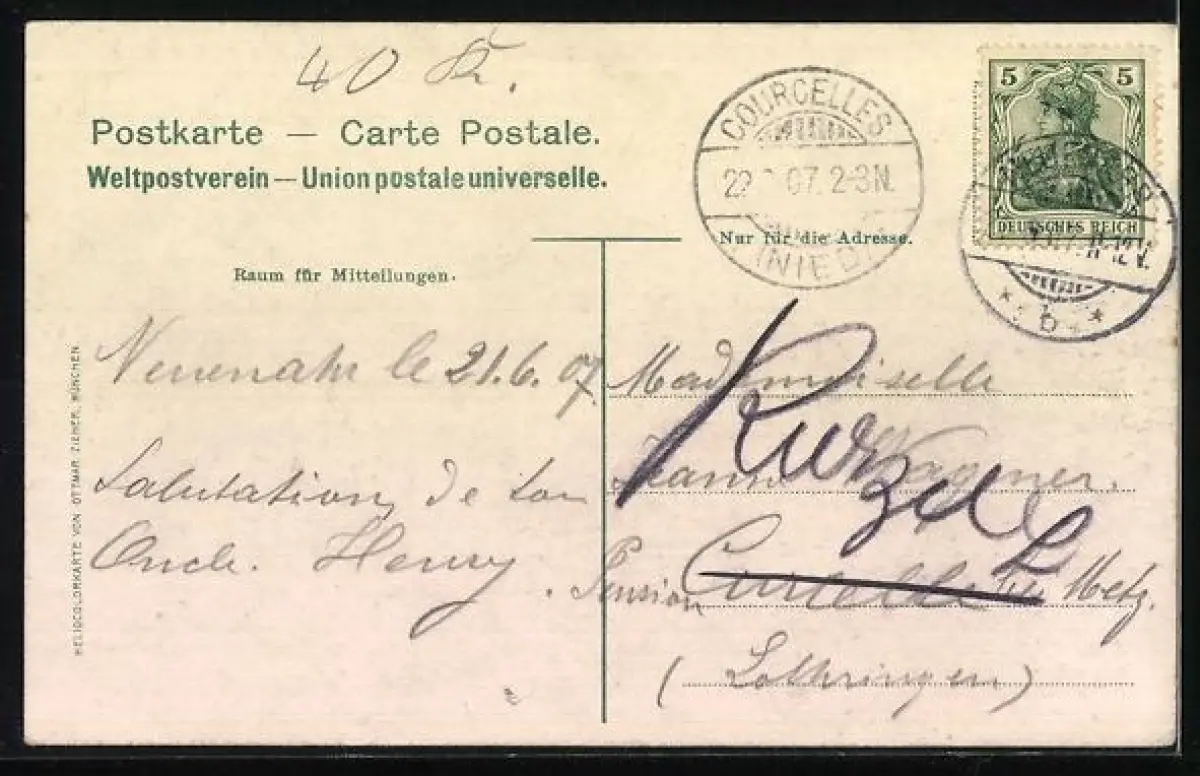 40 Kr.
Postkarte — Carte Postale.
Weltpostverein — Union postale universelle.
COURCELLES
22 07. 2-3N.
(NIED)
5 5
DEUTSCHES REICH
11-12V.
* b *
Nur für die Adresse.
Raum für Mitteilungen.
Neuenahr le 21.6.07.
Salutations de ton
Oncle Henry.
Mademoiselle
Jeanne Wagner.
Kurzel
Pension Curcelle bei Metz.
(Lothringen)
HELIOCOLORKARTE VON OTTMAR ZIEHER, MÜNCHEN